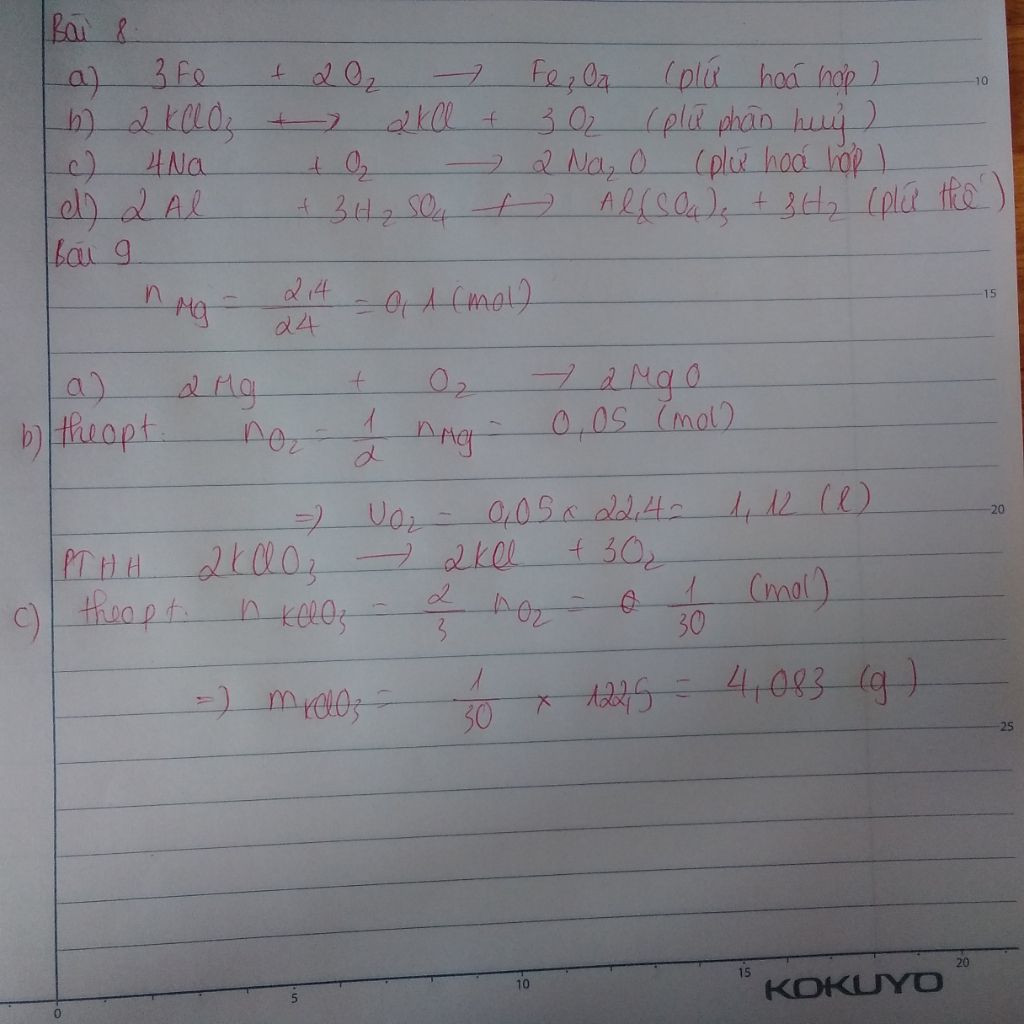 Bài 8.
a) 3Fe + 2O₂ → Fe₃O₄ (pứ hoá hợp)
10
b) 2KClO₃ → 2KCl + 3O₂ (pứ phân huỷ)
c) 4Na + O₂ → 2Na₂O (pứ hoá hợp)
d) 2Al + 3H₂SO₄ → Al₂(SO₄)₃ + 3H₂ (pứ thế)
Bài 9
n Mg = 2,4/24 = 0,1 (mol)
15
a) 2Mg + O₂ → 2MgO
b) theo pt. nO₂ = 1/2 nMg = 0,05 (mol)
=> VO₂ = 0,05 x 22,4 = 1,12 (l)
20
PTHH 2KClO₃ → 2KCl + 3O₂
c) theo pt. n KClO₃ = 2/3 nO₂ = 1/30 (mol)
=> mKClO₃ = 1/30 x 122,5 = 4,083 (g)
25
0 5 10 15 20
KOKUYO